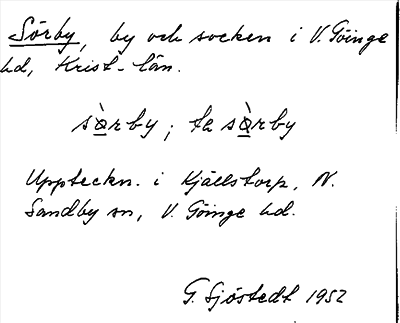 Sörby, by och socken i V. Göinge
hd, Krist. län.
sàrby; ta sàrby
Uppteckn. i Kjällstorp, N.
Sandby sn, V. Göinge hd.
G. Sjöstedt 1952